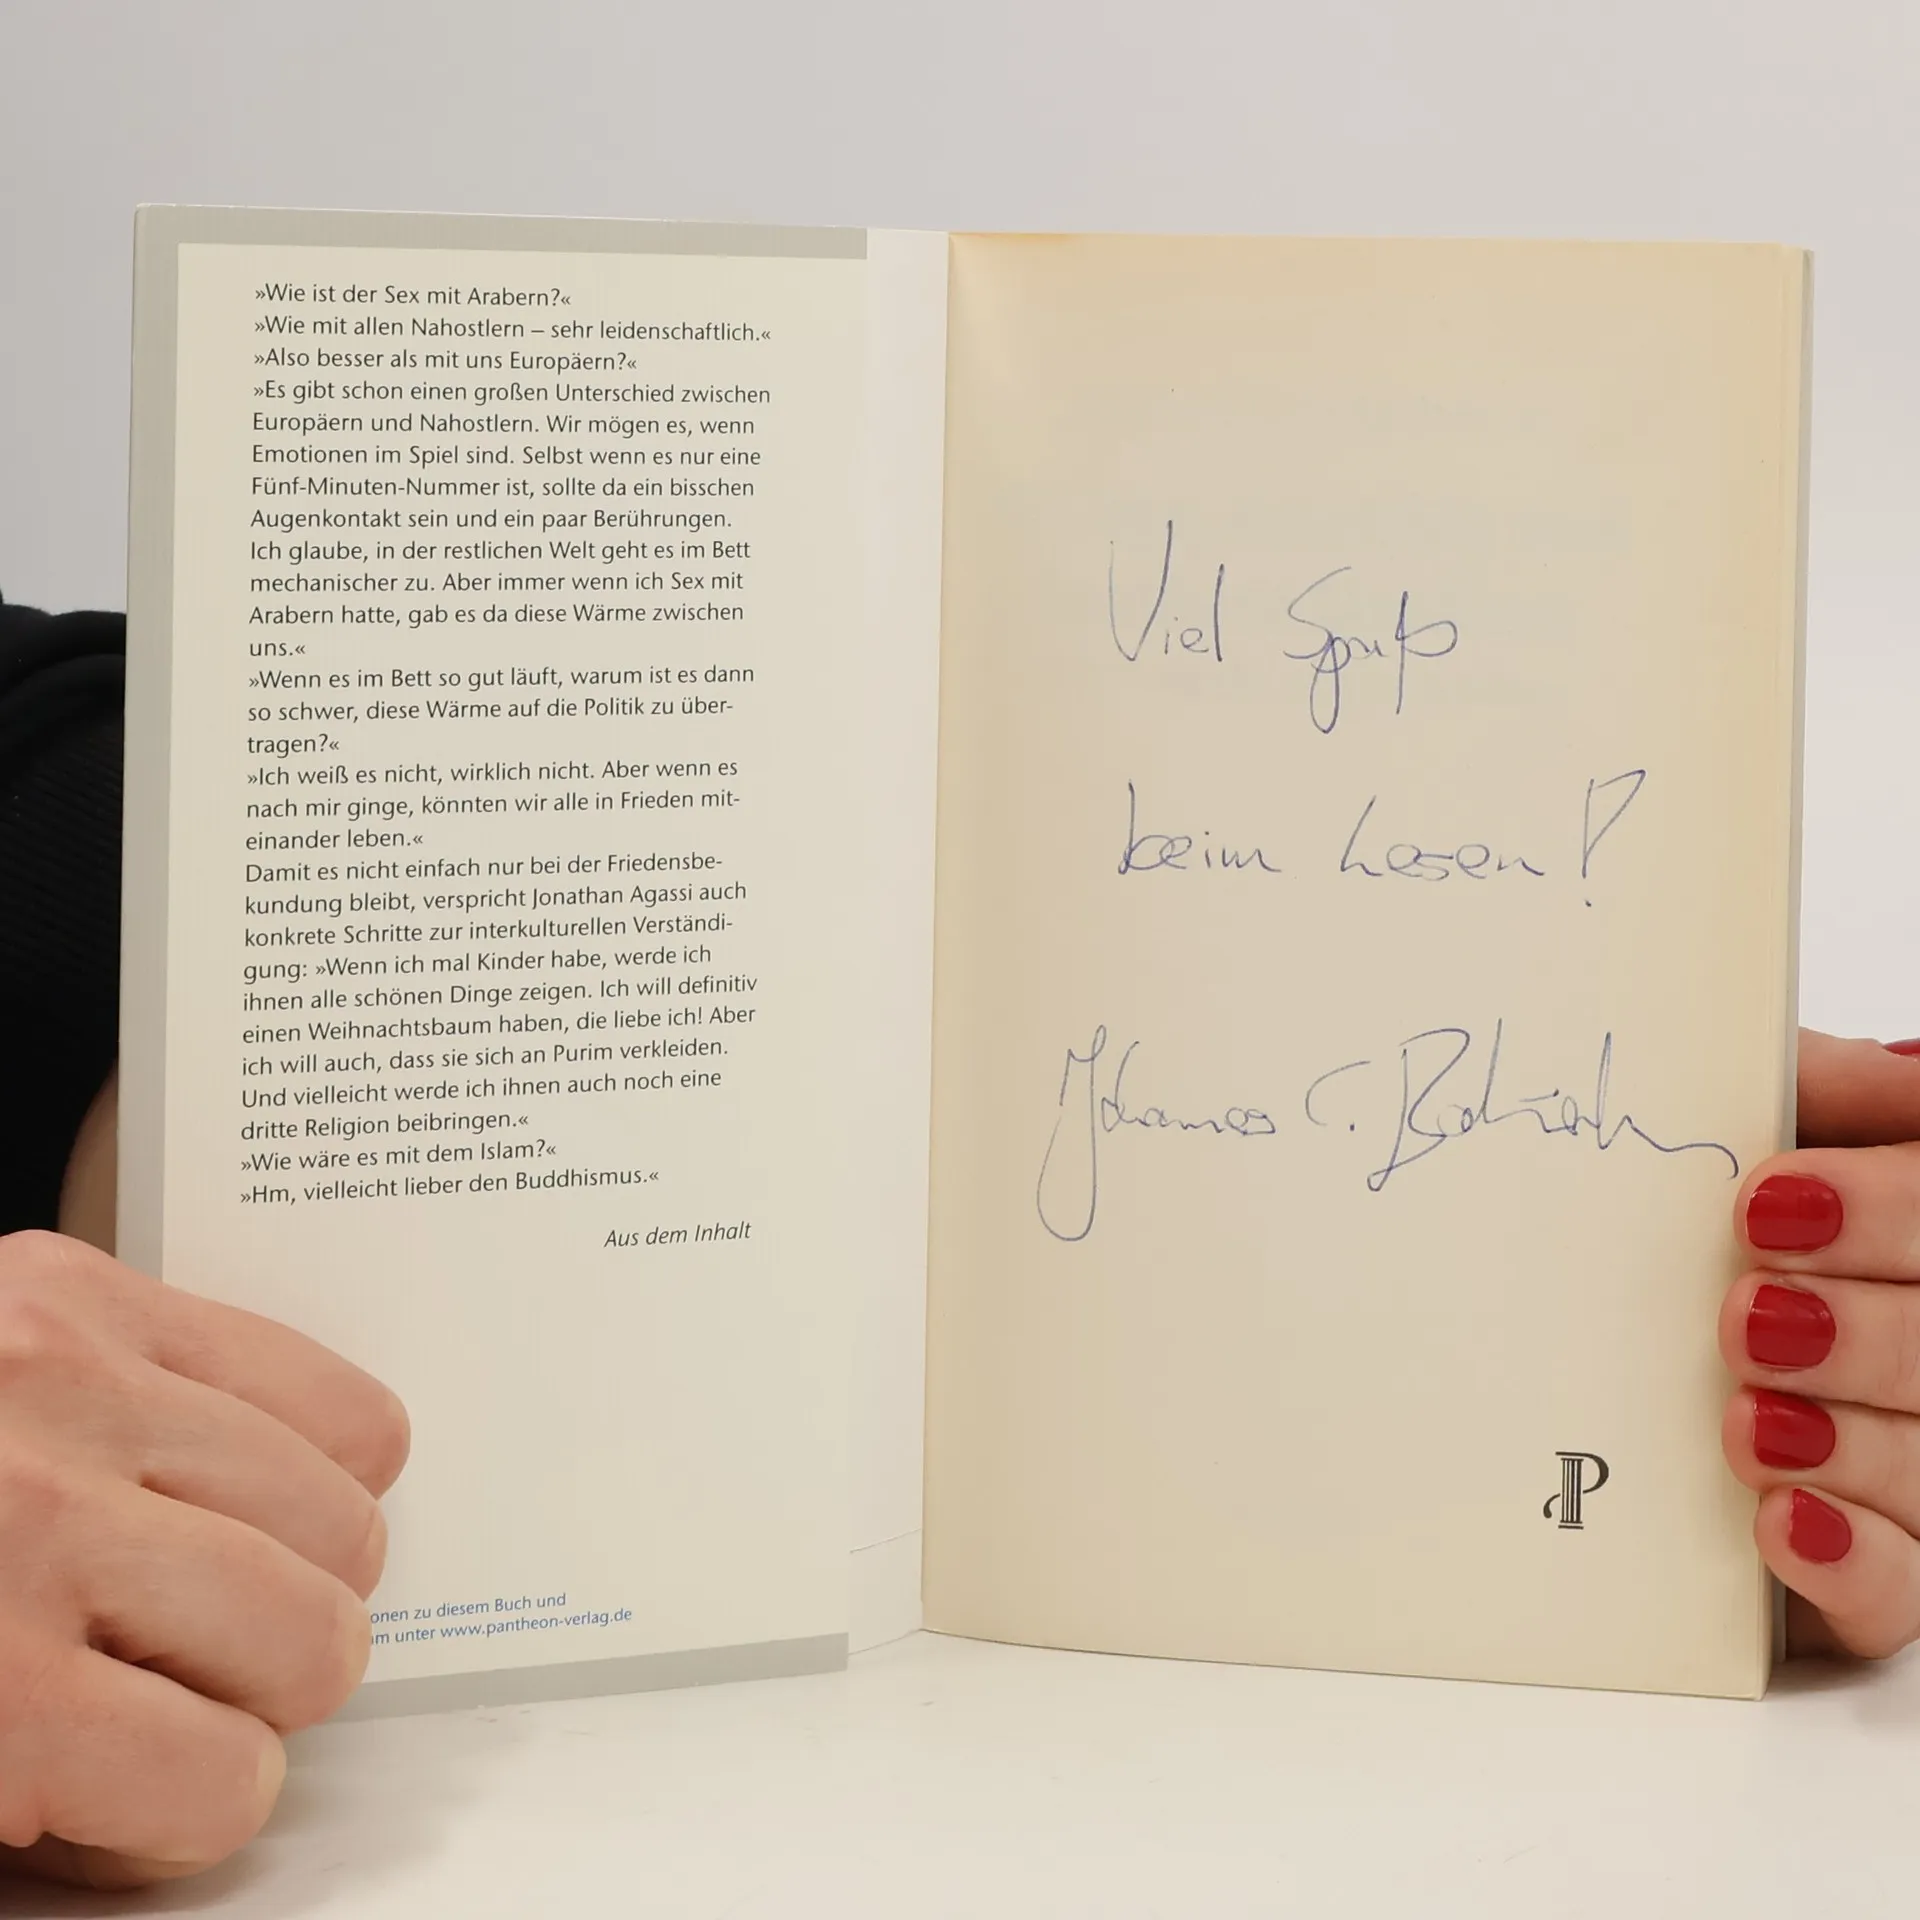 »Wie ist der Sex mit Arabern?«
»Wie mit allen Nahostlern – sehr leidenschaftlich.«
»Also besser als mit uns Europäern?«
»Es gibt schon einen großen Unterschied zwischen
Europäern und Nahostlern. Wir mögen es, wenn
Emotionen im Spiel sind. Selbst wenn es nur eine
Fünf-Minuten-Nummer ist, sollte da ein bisschen
Augenkontakt sein und ein paar Berührungen.
Ich glaube, in der restlichen Welt geht es im Bett
mechanischer zu. Aber immer wenn ich Sex mit
Arabern hatte, gab es da diese Wärme zwischen
uns.«
»Wenn es im Bett so gut läuft, warum ist es dann
so schwer, diese Wärme auf die Politik zu über-
tragen?«
»Ich weiß es nicht, wirklich nicht. Aber wenn es
nach mir ginge, könnten wir alle in Frieden mit-
einander leben.«
Damit es nicht einfach nur bei der Friedensbe-
kundung bleibt, verspricht Jonathan Agassi auch
konkrete Schritte zur interkulturellen Verständi-
gung: »Wenn ich mal Kinder habe, werde ich
ihnen alle schönen Dinge zeigen. Ich will definitiv
einen Weihnachtsbaum haben, die liebe ich! Aber
ich will auch, dass sie sich an Purim verkleiden.
Und vielleicht werde ich ihnen auch noch eine
dritte Religion beibringen.«
»Wie wäre es mit dem Islam?«
»Hm, vielleicht lieber den Buddhismus.«
Aus dem Inhalt
onen zu diesem Buch und
m unter www.pantheon-verlag.de
Viel Spaß
beim Lesen!
Johannes C.
P